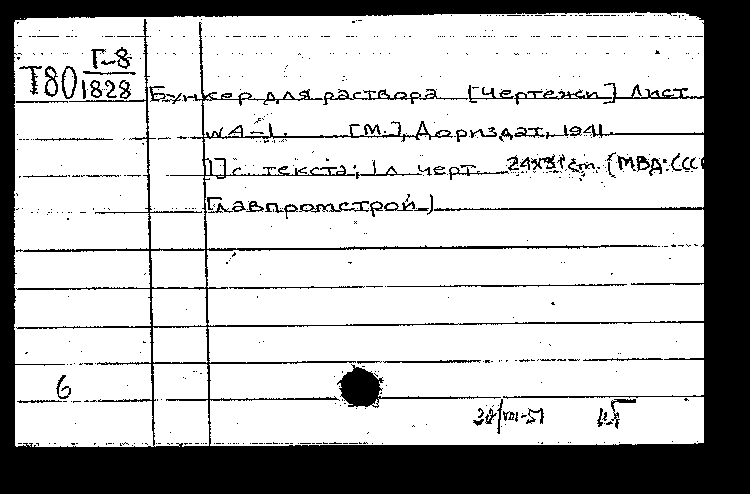 Т80 Г-8
1828
Бункер для раствора [Чертежи] Лист
№А-1. [М.], Дориздат, 1941.
[1] с текста; 1 л черт 24х31 cm. (МВД СССР
Главпромстрой)
6
30/VIII-51